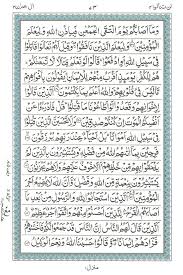 لن تنالوا ٤ ٧٣ آل عمران ٣
وَمَآ اَصَابَكُمْ يَوْمَ الْتَقَى الْجَمْعٰنِ فَبِاِذْنِ اللّٰهِ وَلِيَعْلَمَ
الْمُؤْمِنِيْنَ وَلِيَعْلَمَ الَّذِيْنَ نَافَقُوْا وَقِيْلَ لَهُمْ تَعَالَوْا
قَاتِلُوْا فِيْ سَبِيْلِ اللّٰهِ اَوِ ادْفَعُوْا قَالُوْا لَوْ نَعْلَمُ قِتَالًا لَّاتَّبَعْنٰكُمْ
هُمْ لِلْكُفْرِ يَوْمَئِذٍ اَقْرَبُ مِنْهُمْ لِلْاِيْمَانِ يَقُوْلُوْنَ بِاَفْوَاهِهِمْ
مَّا لَيْسَ فِيْ قُلُوْبِهِمْ وَاللّٰهُ اَعْلَمُ بِمَا يَكْتُمُوْنَ اَلَّذِيْنَ قَالُوْا
لِاِخْوَانِهِمْ وَقَعَدُوْا لَوْ اَطَاعُوْنَا مَا قُتِلُوْا قُلْ فَادْرَءُوْا
عَنْ اَنْفُسِكُمُ الْمَوْتَ اِنْ كُنْتُمْ صٰدِقِيْنَ وَلَا تَحْسَبَنَّ الَّذِيْنَ
قُتِلُوْا فِيْ سَبِيْلِ اللّٰهِ اَمْوَاتًا بَلْ اَحْيَآءٌ عِنْدَ رَبِّهِمْ يُرْزَقُوْنَ
فَرِحِيْنَ بِمَآ اٰتٰهُمُ اللّٰهُ مِنْ فَضْلِهٖ وَيَسْتَبْشِرُوْنَ بِالَّذِيْنَ
لَمْ يَلْحَقُوْا بِهِمْ مِّنْ خَلْفِهِمْ اَلَّا خَوْفٌ عَلَيْهِمْ وَلَا هُمْ يَحْزَنُوْنَ
يَسْتَبْشِرُوْنَ بِنِعْمَةٍ مِّنَ اللّٰهِ وَفَضْلٍ وَّاَنَّ اللّٰهَ لَا يُضِيْعُ
اَجْرَ الْمُؤْمِنِيْنَ اَلَّذِيْنَ اسْتَجَابُوْا لِلّٰهِ وَالرَّسُوْلِ مِنْ بَعْدِ
مَآ اَصَابَهُمُ الْقَرْحُ لِلَّذِيْنَ اَحْسَنُوْا مِنْهُمْ وَاتَّقَوْا اَجْرٌ عَظِيْمٌ
اَلَّذِيْنَ قَالَ لَهُمُ النَّاسُ اِنَّ النَّاسَ قَدْ جَمَعُوْا لَكُمْ فَاخْشَوْهُمْ
فَزَادَهُمْ اِيْمَانًا وَّقَالُوْا حَسْبُنَا اللّٰهُ وَنِعْمَ الْوَكِيْلُ